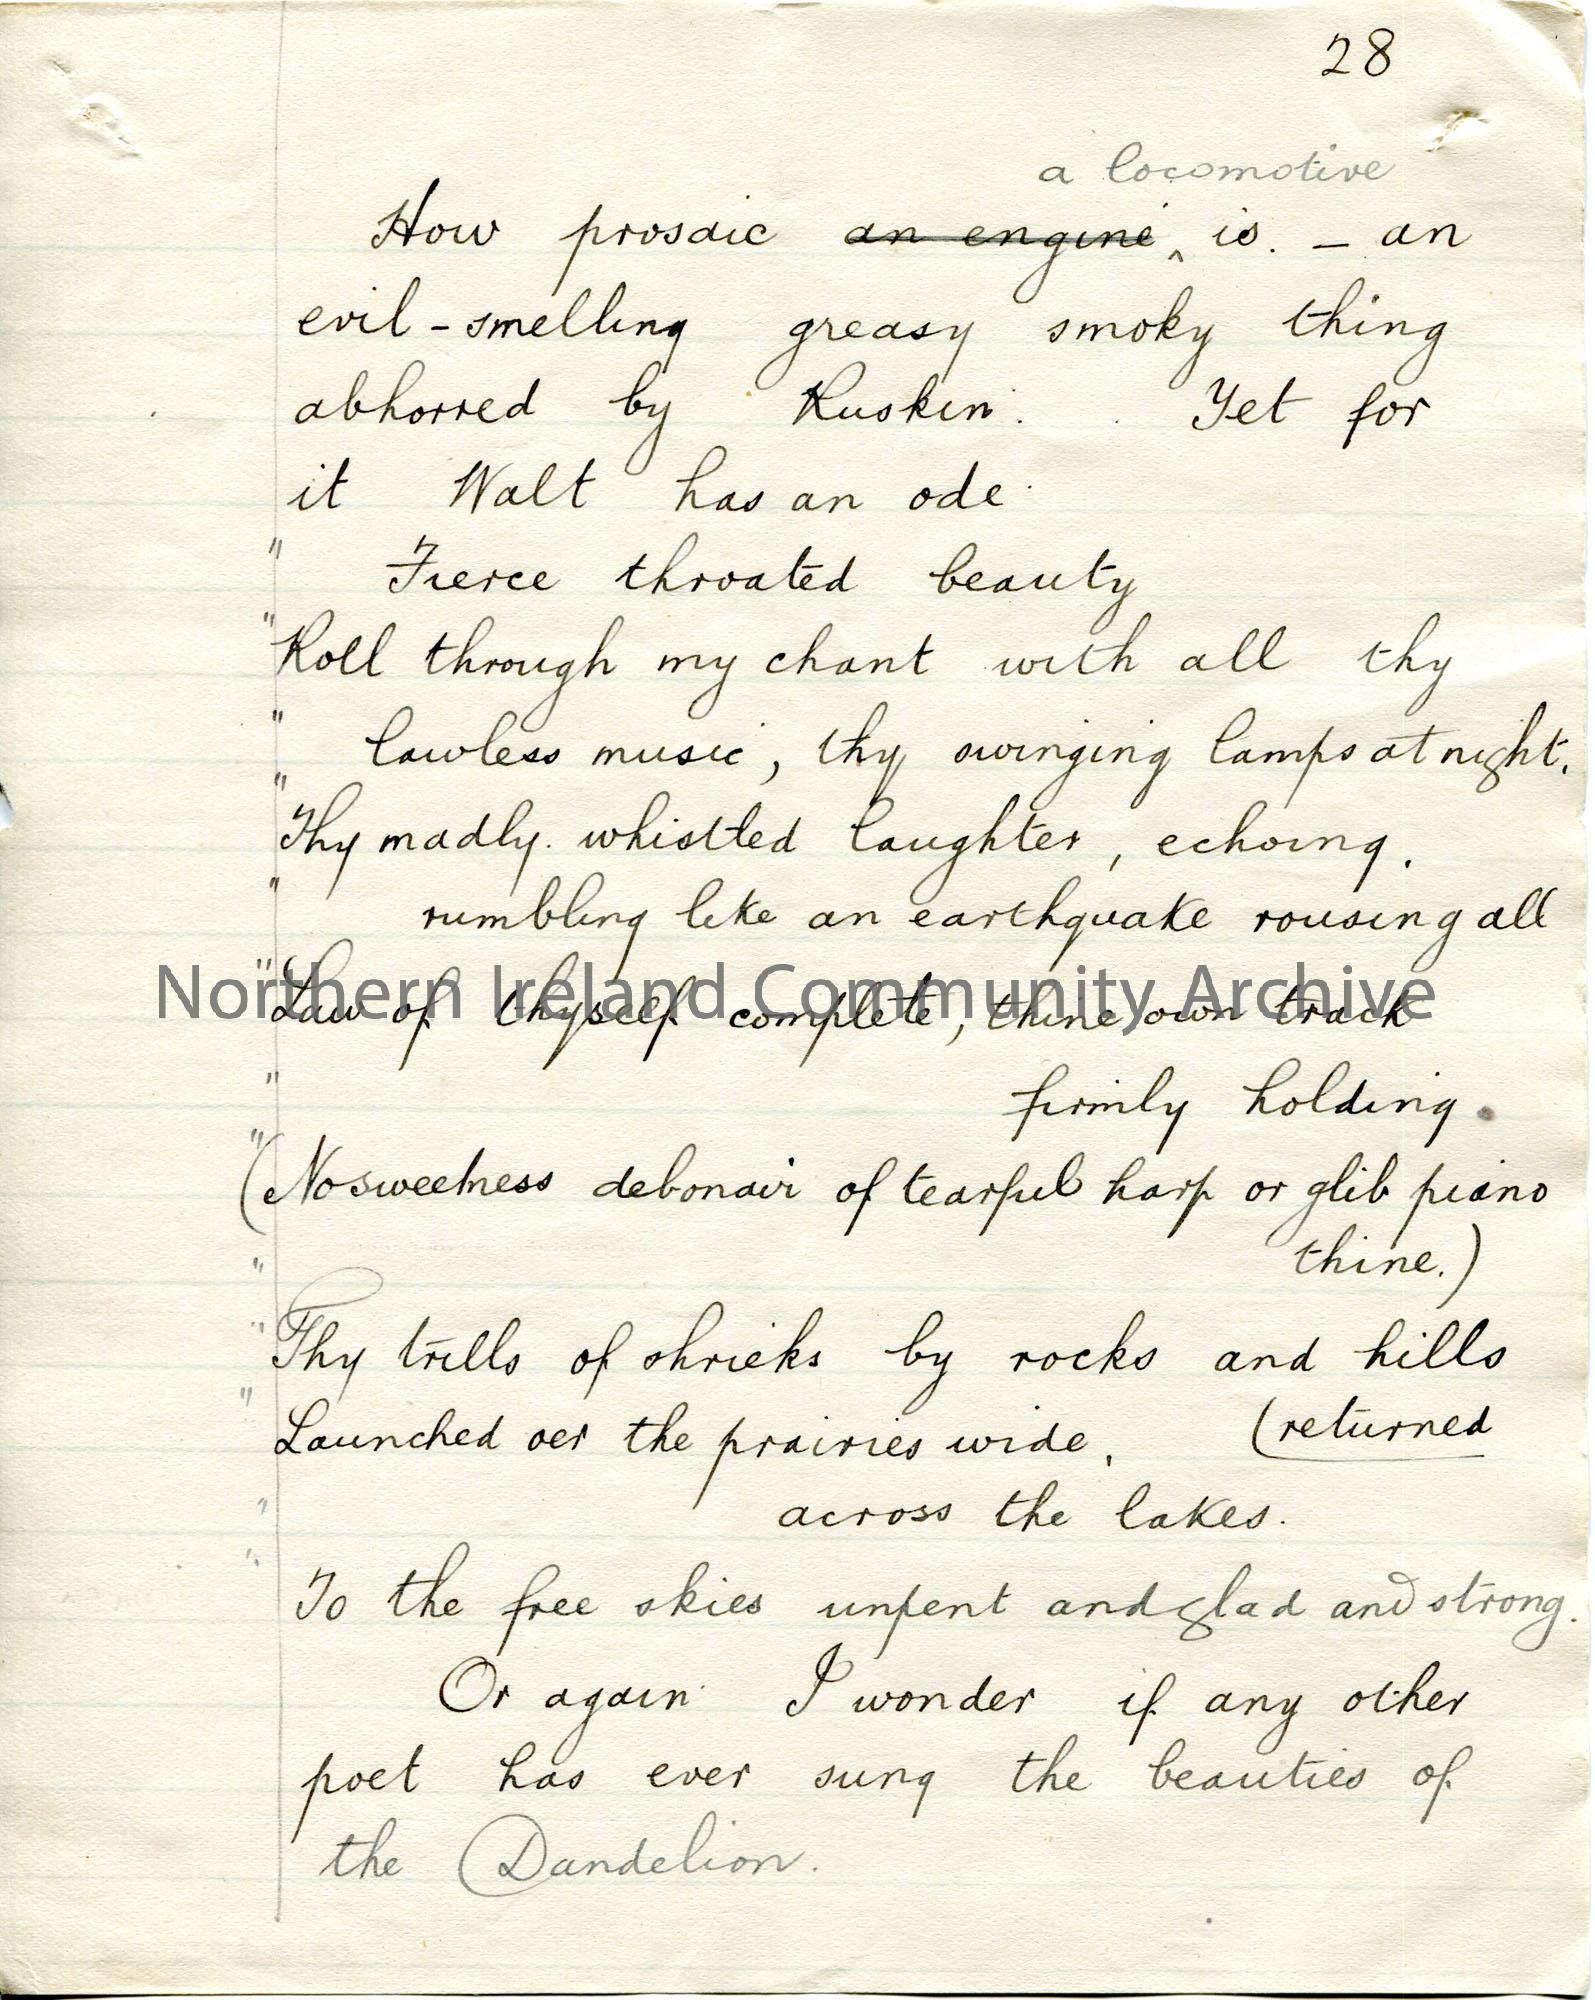 28
a locomotive
How prosaic an engine ^ is. – an
evil-smelling greasy smoky thing
abhorred by Ruskin. Yet for
it Walt has an ode.
" Fierce throated beauty
" Roll through my chant with all thy
" lawless music, thy swinging lamps at night.
" Thy madly. whistled laughter, echoing,
" rumbling like an earthquake rousing all
" Law of thyself complete, thine own track
" firmly holding.
" (No sweetness debonair of tearful harp or glib piano
" thine.)
" Thy trills of shrieks by rocks and hills
(returned
" Launched oer the prairies wide,
" across the lakes.
" To the free skies unpent and glad and strong.
Or again I wonder if any other
poet has ever sung the beauties of
the Dandelion.
Northern Ireland Community Archive